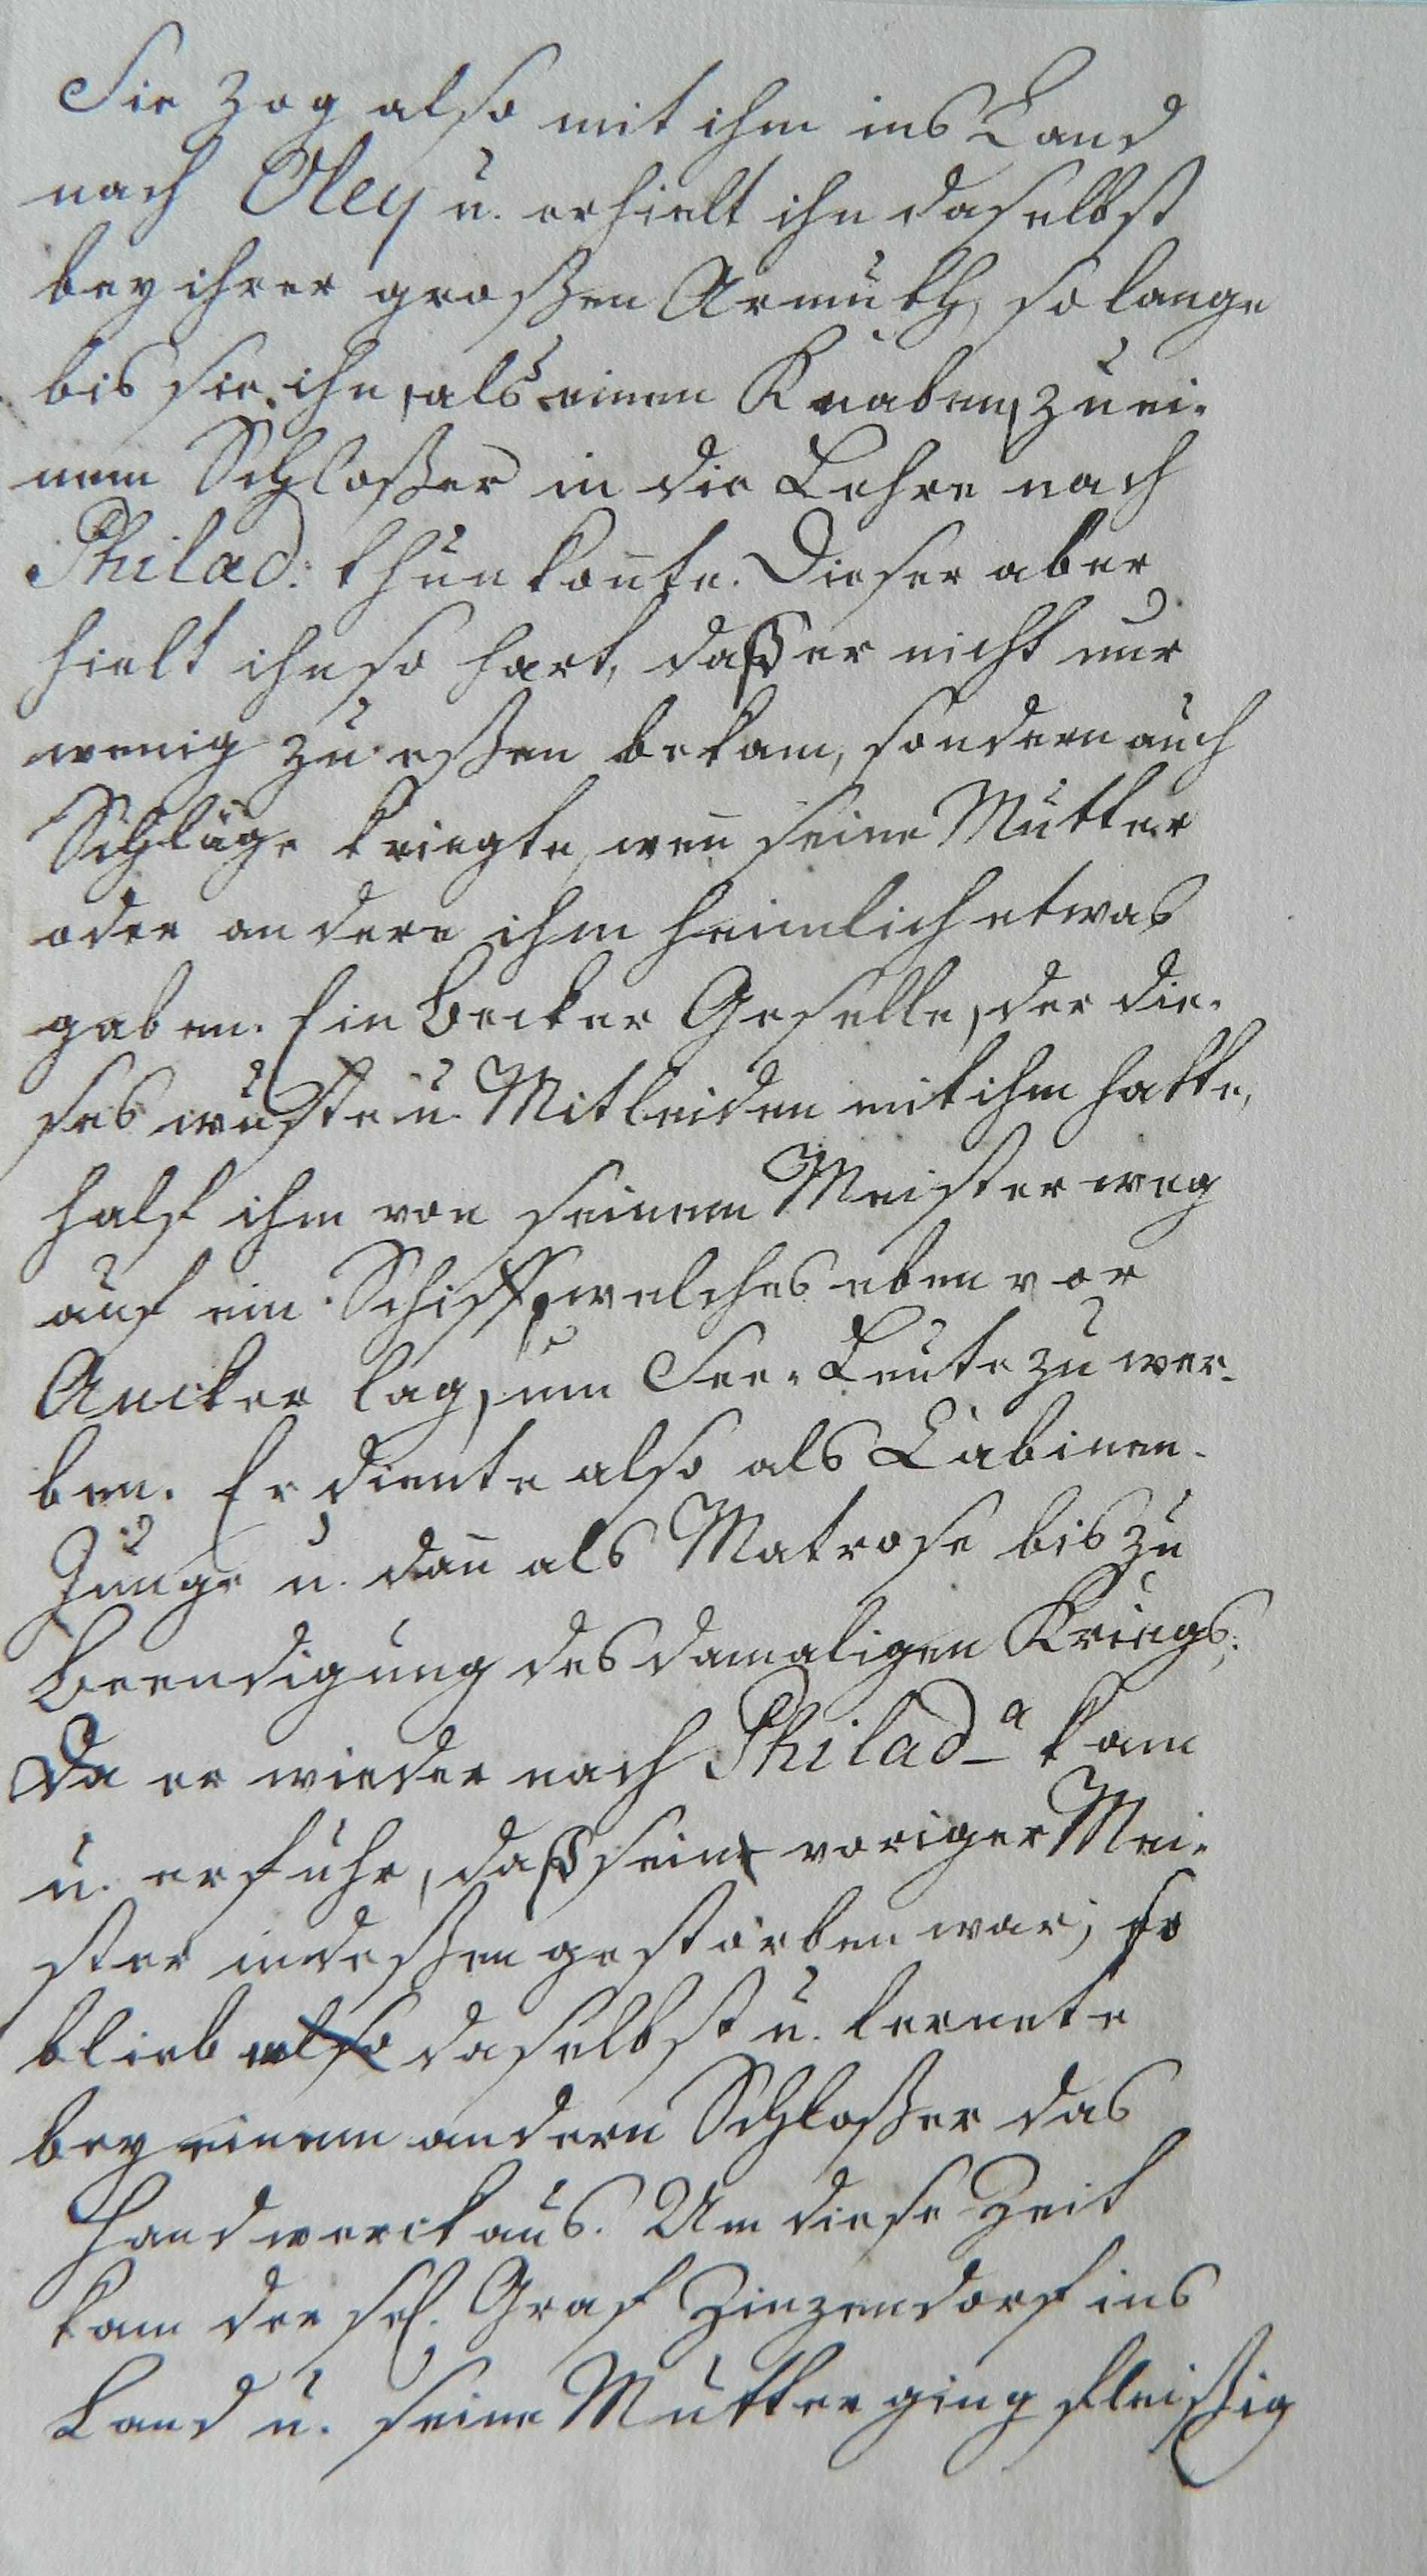 Sie zog also mit ihm ins Land
nach Oley u. erhielt ihn daselbst
bey ihrer großen Armuth, so lange
bis sie ihn, als einen Knaben, zu ei-
nem Schloßer in die Lehre nach
Philad: thun kon̄te. Dieser aber
hielt ihn so hart, daß er nicht nur
wenig zu eßen bekam, sondern auch
Schläge kriegte, wen̄ seine Mutter
oder andere ihm heimlich etwas
gaben. Ein Becker Geselle, der die-
ses wußte u. Mitleiden mit ihm hatte,
half ihm von seinem Meister weg
auf ein Schiff, welches eben vor
Ancker lag, um See-Leute zu wer-
ben. Er diente also als Cabinen-
Junge u. dan̄ als Matrose bis zu
Beendigung des damaligen Kriegs;
Da er wieder nach Philad-a kam
u. erfuhr, daß sein voriger Mei-
ster indeßen gestorben war; so
blieb also daselbst u. lernete
bey einem andern Schloßer das
Handwerck aus. Um diese Zeit
kam der sel. Graf Zinzendorf ins
Land u. seine Mutter ging fleißig